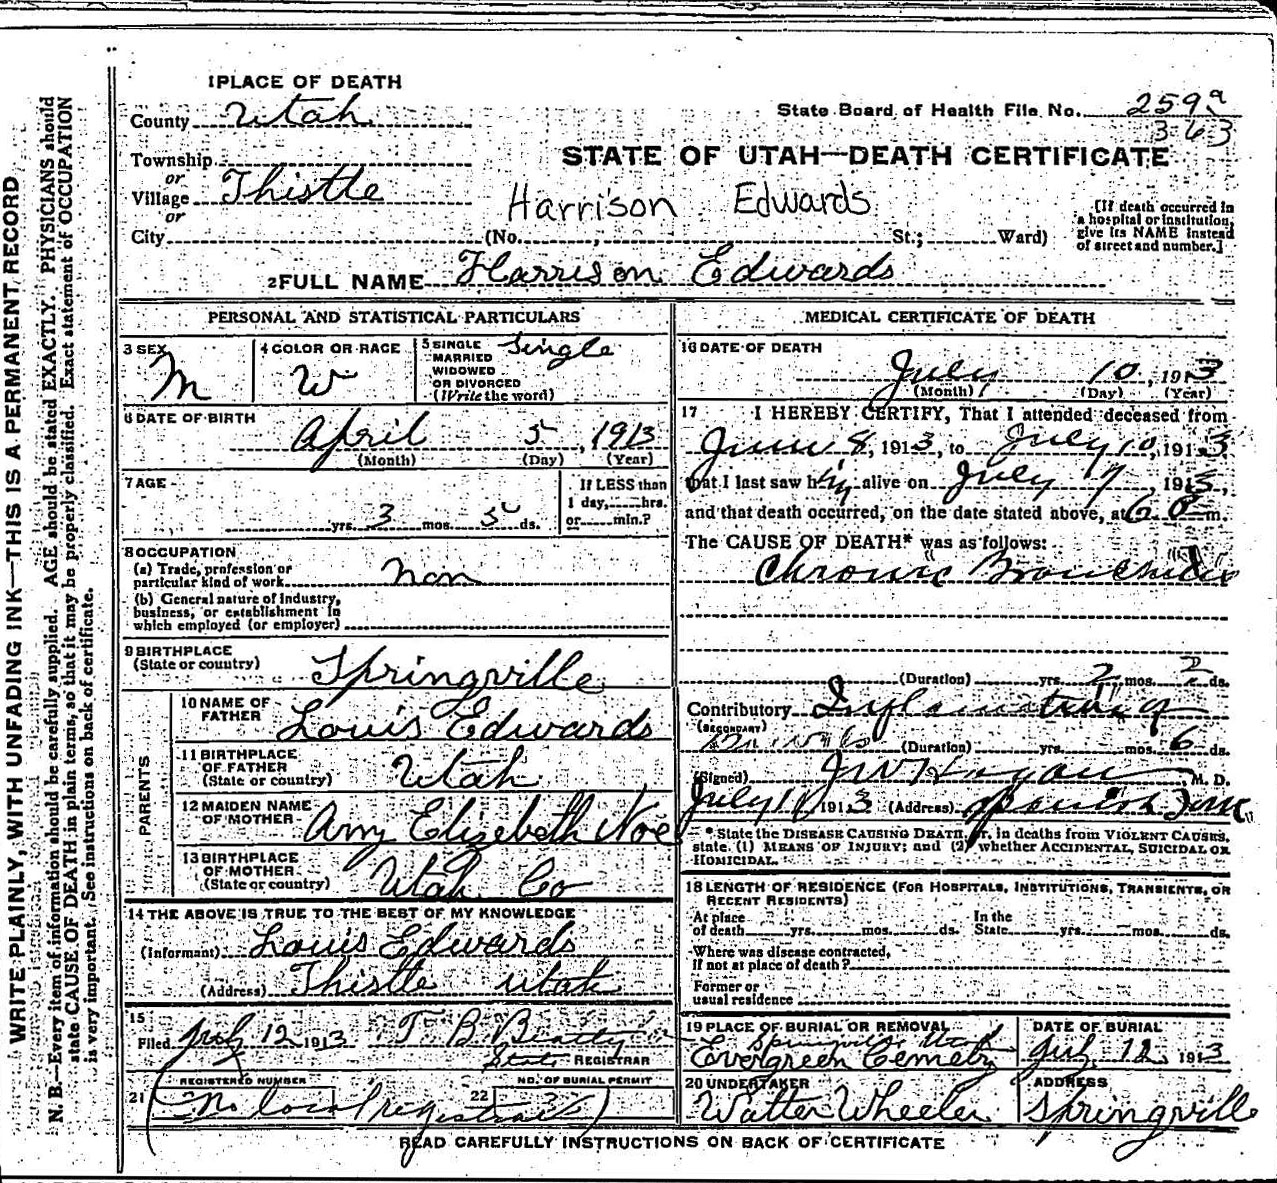 WRITE PLAINLY, WITH UNFADING INK—THIS IS A PERMANENT RECORD
N. B.—Every item of information should be carefully supplied. AGE should be stated EXACTLY. PHYSICIANS should
state CAUSE OF DEATH in plain terms, so that it may be properly classified. Exact statement of OCCUPATION
is very important. See instructions on back of certificate.
1 PLACE OF DEATH
County Utah
State Board of Health File No. 259a
363
Township
or
Village Thistle
or
City (No. , St.; Ward)
STATE OF UTAH—DEATH CERTIFICATE
Harrison Edwards
[If death occurred in
a hospital or institution,
give its NAME instead
of street and number.]
2 FULL NAME Harrison Edwards
PERSONAL AND STATISTICAL PARTICULARS
3 SEX M
4 COLOR OR RACE W
5 SINGLE Single
MARRIED
WIDOWED
OR DIVORCED
(Write the word)
6 DATE OF BIRTH
April 5, 1913
(Month) (Day) (Year)
7 AGE
yrs. 3 mos. 5 ds.
If LESS than
1 day, hrs.
or min.?
8 OCCUPATION
(a) Trade, profession or
particular kind of work non
(b) General nature of industry,
business, or establishment in
which employed (or employer)
9 BIRTHPLACE
(State or country) Springville
PARENTS
10 NAME OF
FATHER Louis Edwards
11 BIRTHPLACE
OF FATHER
(State or country) Utah
12 MAIDEN NAME
OF MOTHER Amy Elizebeth Noe
13 BIRTHPLACE
OF MOTHER
(State or country) Utah Co
14 THE ABOVE IS TRUE TO THE BEST OF MY KNOWLEDGE
(Informant) Louis Edwards
(Address) Thistle Utah
15
Filed July 12 1913 T. B. Beatty
State REGISTRAR
REGISTERED NUMBER
NO. OF BURIAL PERMIT
21 22
(No local registrar)
MEDICAL CERTIFICATE OF DEATH
16 DATE OF DEATH
July 10, 1913
(Month) (Day) (Year)
17 I HEREBY CERTIFY, That I attended deceased from
June 8, 1913, to July 10, 1913
that I last saw him alive on July 9, 191
and that death occurred, on the date stated above, at m.
The CAUSE OF DEATH* was as follows:
Chronic Bronchitis
(Duration) yrs. 2 mos. 2 ds.
Contributory
(SECONDARY)
(Duration) yrs. mos. 6 ds.
(Signed) M. D.
July 11 1913 (Address) Spanish Fork
* State the DISEASE CAUSING DEATH, or, in deaths from VIOLENT CAUSES,
state (1) MEANS OF INJURY; and (2) whether ACCIDENTAL, SUICIDAL OR
HOMICIDAL.
18 LENGTH OF RESIDENCE (FOR HOSPITALS, INSTITUTIONS, TRANSIENTS, OR
RECENT RESIDENTS)
At place
of death yrs. mos. ds.
In the
State yrs. mos. ds.
Where was disease contracted,
if not at place of death?
Former or
usual residence
19 PLACE OF BURIAL OR REMOVAL
Springville Utah
Evergreen Cemetery
DATE OF BURIAL
July 12 1913
20 UNDERTAKER
Walter Wheeler
ADDRESS
Springville
READ CAREFULLY INSTRUCTIONS ON BACK OF CERTIFICATE